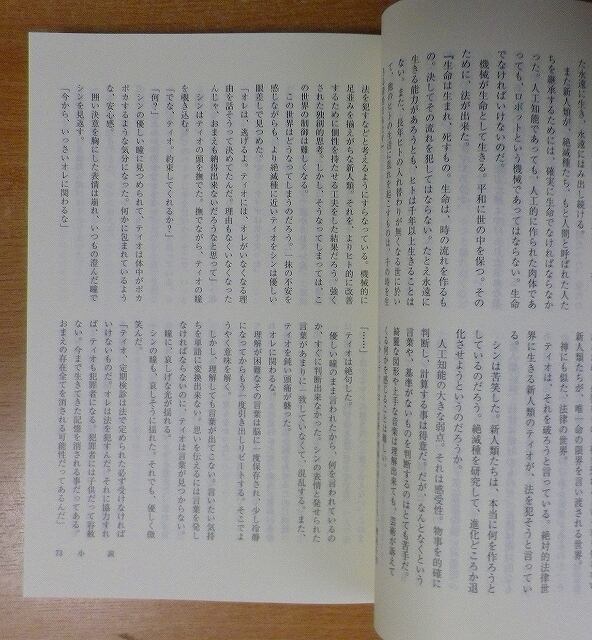 た永遠に生き、永遠にはみ出し続ける。
また新人類が、絶滅種たち、もとい人間と呼ばれた人た
ちを継承するためには、確実に生命でなければならなか
った。人工知能であっても、人工的に作られた肉体であ
っても、ロボットという機械であってはならない。生命
でなければいけないのだ。
機械が生命として生きる。平和に世の中を保つ。その
ために、法が出来た。
『生命は生まれ、死すもの。生命は、時の流れを作るも
の。決してその流れを犯してはならない。たとえ永遠に
生きる能力があろうとも、ヒトは千年以上生きることは
ない。また、長年ヒトの入れ替わりが無くなる世に於い
て、他のヒトの生活に乱れを起こすものは、その時を
新人類たちが、唯一命の限界を言い渡される世界。
神にも似た、法律の世界。
ティオは、それを破ろうと言っている。絶対的法律世
界に生きる新人類のティオが、法を犯そうと言ってい
る。
シンは苦笑した。新人類たちは、本当に何を作ろうと
しているのだろう。絶滅種を研究して、進化どころか退
化させようというのだろうか。
人工知能の大きな弱点。それは感受性。物事を的確に
判断し、計算する事は得意だ。だが、なんとなくという
言葉や、基準がないものを判断するのはとても苦手だ。
綺麗な図形や上手な音楽は理解出来ても、芸術が訴えて
くる何かを感じることは難しい。
法を犯すなどと考えるようにすらなっている。機械的に
足並みを揃えがちな新人類。それを、よりヒト的に改善
するために個性を持たせる工夫をした結果だろう。強く
された独創的思考。しかし、そうなってしまっては、こ
の世界の制御は難しくなる。
この世界はどうなってしまうのだろう。一抹の不安を
感じながらも、より絶滅種に近いティオをシンは優しい
眼差しで見つめた。
「オレは、逃げるよ。ティオには、オレがいなくなる理
由を話そうって決めてたんだ。理由もなくいなくなった
んじゃ、おまえも納得出来ないだろうなと思って」
シンはティオの頭を撫でた。撫でながら、ティオの瞳
を覗き込む。
「でな、ティオ。約束してくれるか？」
「何？」
シンの優しい瞳に見つめられて、ティオは体中がポカ
ポカするような気分になった。何かに包まれているよう
な、安心感。
固い決意を胸にした表情は崩れ、いつもの澄んだ瞳で
シンを見返す。
「今から、いっさいオレに関わるな」
「！…」
ティオは絶句した。
優しい瞳のまま言われたから、何を言われているの
か、すぐに判断出来なかった。シンの表情と発せられた
言葉があまりに一致していなくて、混乱する。また、
ティオを鈍い頭痛が襲った。
オレに関わるな
理解が困難なその言葉は脳に一度保存され、少し冷静
になってからもう一度引き出しリピートする。そこでよ
うやく意味を解く。
しかし、理解しても言葉が出てこない。言いたい気持
ちを単語に変換出来ない。思いを伝えるには言葉を発し
なければならないのに、ティオは言葉が見つからない。
瞳に、哀しげな光が揺れる。
シンの瞳も、哀しそうに揺れた。それでも、優しく微
笑んだ。
「ティオ、定期検診は法で定められた必ず受けなければ
いけないものだ。オレは法を犯すんだ。それに協力すれ
ば、ティオも犯罪者になる。犯罪者には子供だって容赦
ない。今まで生きてきた記憶を消される事だってある。
おまえの存在全てを消される可能性だってあるんだ」
73　小　説